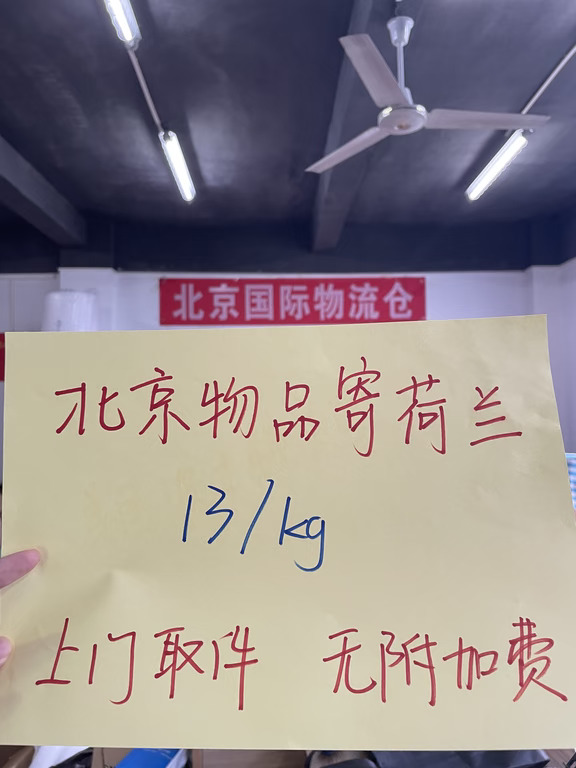 北京国际物流仓
北京物品寄荷兰
13/kg
上门取件 无附加费